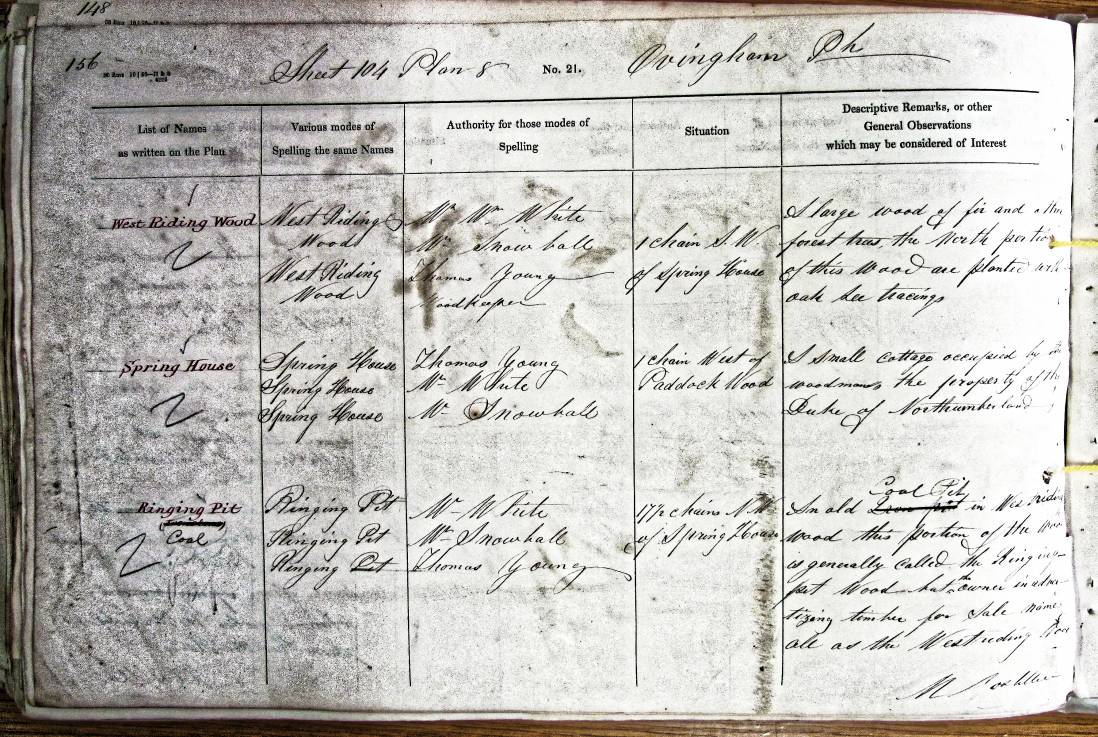 148
156
Sheet 104 Plan 8 No. 21. Ovingham Ph
List of Names
as written on the Plan
Various modes of
Spelling the same Names
Authority for those modes of
Spelling
Situation
Descriptive Remarks, or other
General Observations
which may be considered of Interest
West Riding Wood
West Riding
Wood
West Riding
Wood
Mr. Wm. White
Mr. Snowball
Thomas Young
Woodkeeper
1 chain S.W
of Spring House
A large wood of fir and other
forest trees, the North portion
of this Wood are planted with
oak See tracings
Spring House
Spring House
Spring House
Spring House
Thomas Young
Mr. White
Mr. Snowball
1 chain West of
Paddock Wood
A small cottage occupied by the
woodman, the property of the
Duke of Northumberland
Ringing Pit
Coal
Ringing Pit
Ringing Pit
Ringing Pit
Mr. White
Mr. Snowball
Thomas Young
17½ chains N.W.
of Spring House
Coal Pit
An old in West riding
wood this portion of the wood
is generally called the Ringing
pit Wood but the owner in adver-
tizing timber for Sale name
all as the West riding Wood